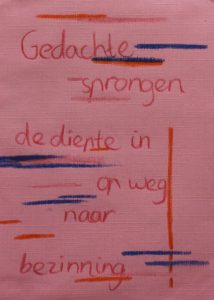 Gedachte
sprongen
de diepte in
op weg
naar
bezinning